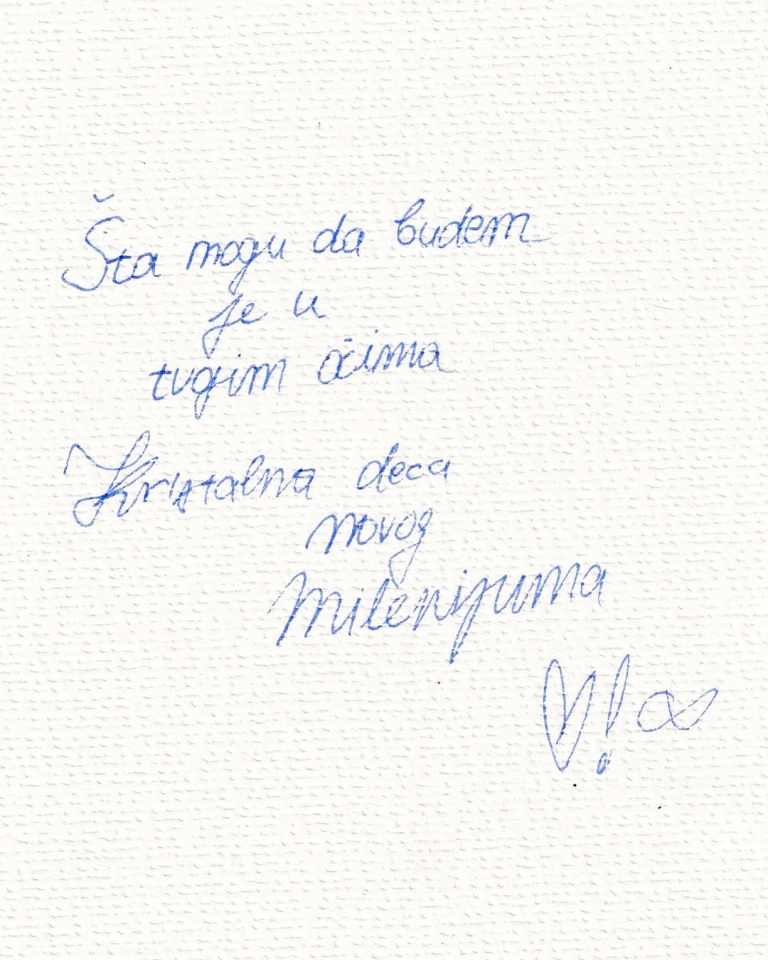 Šta mogu da budem
je u
tvojim očima
Kristalna deca
novog
Milenijuma